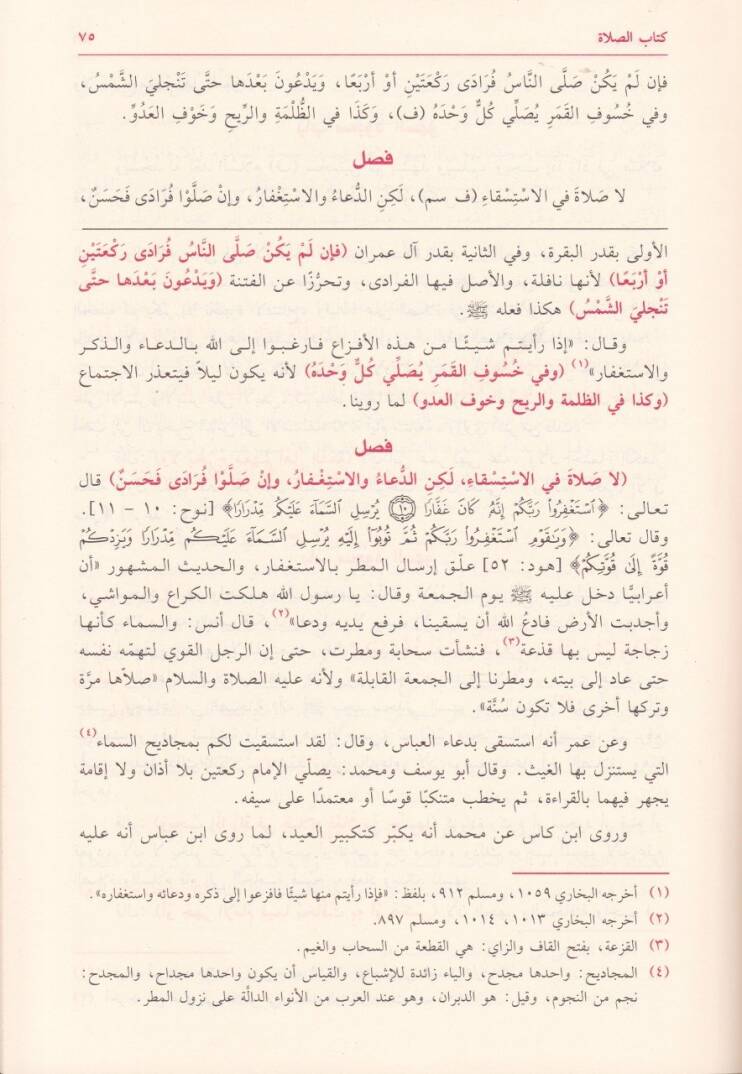 كتاب الصلاة ٧٥
فإن لَمْ يَكُنْ صَلَّى النَّاسُ فُرَادَى رَكْعَتَيْنِ أوْ أرْبَعًا، وَيَدْعُونَ بَعْدَها حتَّى تَنْجليَ الشَّمْسُ،
وفي خُسُوفِ القَمَرِ يُصَلِّي كُلٌّ وَحْدَهُ (ف)، وَكَذَا في الظُّلْمَةِ والرِّيحِ وَخَوْفِ العَدُوِّ.
فصل
لا صَلاةَ في الاسْتِسْقاءِ (ف سم)، لَكِنِ الدُّعاءُ والاسْتِغْفارُ، وإنْ صَلَّوْا فُرَادَى فَحَسَنٌ،
الأولى بقدر البقرة، وفي الثانية بقدر آل عمران (فإن لَمْ يَكُنْ صَلَّى النَّاسُ فُرَادَى رَكْعَتَيْنِ
أوْ أرْبَعًا) لأنها نافلة، والأصل فيها الفرادى، وتحرُّزًا عن الفتنة (وَيَدْعُونَ بَعْدَها حتَّى
تَنْجليَ الشَّمْسُ) هكذا فعله ﷺ.
وقال: «إذا رأيتم شيئًا من هذه الأفزاع فارغبوا إلى الله بالدعاء والذكر
والاستغفار»(١) (وفي خُسُوفِ القَمَرِ يُصَلِّي كُلٌّ وَحْدَهُ) لأنه يكون ليلاً فيتعذر الاجتماع
(وكذا في الظلمة والريح وخوف العدو) لما روينا.
فصل
(لا صَلاةَ في الاسْتِسْقاءِ، لَكِنِ الدُّعاءُ والاسْتِغْفارُ، وإنْ صَلَّوْا فُرَادَى فَحَسَنٌ) قال
تعالى: ﴿ٱسْتَغْفِرُوا۟ رَبَّكُمْ إِنَّهُۥ كَانَ غَفَّارًا ١٠ يُرْسِلِ ٱلسَّمَآءَ عَلَيْكُم مِّدْرَارًا﴾ [نوح: ١٠ - ١١].
وقال تعالى: ﴿وَيَٰقَوْمِ ٱسْتَغْفِرُوا۟ رَبَّكُمْ ثُمَّ تُوبُوٓا۟ إِلَيْهِ يُرْسِلِ ٱلسَّمَآءَ عَلَيْكُم مِّدْرَارًا وَيَزِدْكُمْ
قُوَّةً إِلَىٰ قُوَّتِكُمْ﴾ [هود: ٥٢] علّق إرسال المطر بالاستغفار، والحديث المشهور «أن
أعرابيًّا دخل عليه ﷺ يوم الجمعة وقال: يا رسول الله هلكت الكراع والمواشي،
وأجدبت الأرض فادعُ الله أن يسقينا، فرفع يديه ودعا»(٢)، قال أنس: والسماء كأنها
زجاجة ليس بها قذعة(٣)، فنشأت سحابة ومطرت، حتى إن الرجل القوي لتهمّه نفسه
حتى عاد إلى بيته، ومطرنا إلى الجمعة القابلة» ولأنه عليه الصلاة والسلام «صلاّها مرّة
وتركها أخرى فلا تكون سُنَّة».
وعن عمر أنه استسقى بدعاء العباس، وقال: لقد استسقيت لكم بمجاديح السماء(٤)
التي يستنزل بها الغيث. وقال أبو يوسف ومحمد: يصلّي الإمام ركعتين بلا أذان ولا إقامة
يجهر فيهما بالقراءة، ثم يخطب متنكبًا قوسًا أو معتمدًا على سيفه.
وروى ابن كاس عن محمد أنه يكبّر كتكبير العيد، لما روى ابن عباس أنه عليه
(١) أخرجه البخاري ١٠٥٩، ومسلم ٩١٢، بلفظ: «فإذا رأيتم منها شيئًا فافزعوا إلى ذكره ودعائه واستغفاره».
(٢) أخرجه البخاري ١٠١٣، ١٠١٤، ومسلم ٨٩٧.
(٣) القزعة، بفتح القاف والزاي: هي القطعة من السحاب والغيم.
(٤) المجاديح: واحدها مجدح، والياء زائدة للإشباع، والقياس أن يكون واحدها مجداح، والمجدح:
نجم من النجوم، وقيل: هو الدبران، وهو عند العرب من الأنواء الدالّة على نزول المطر.